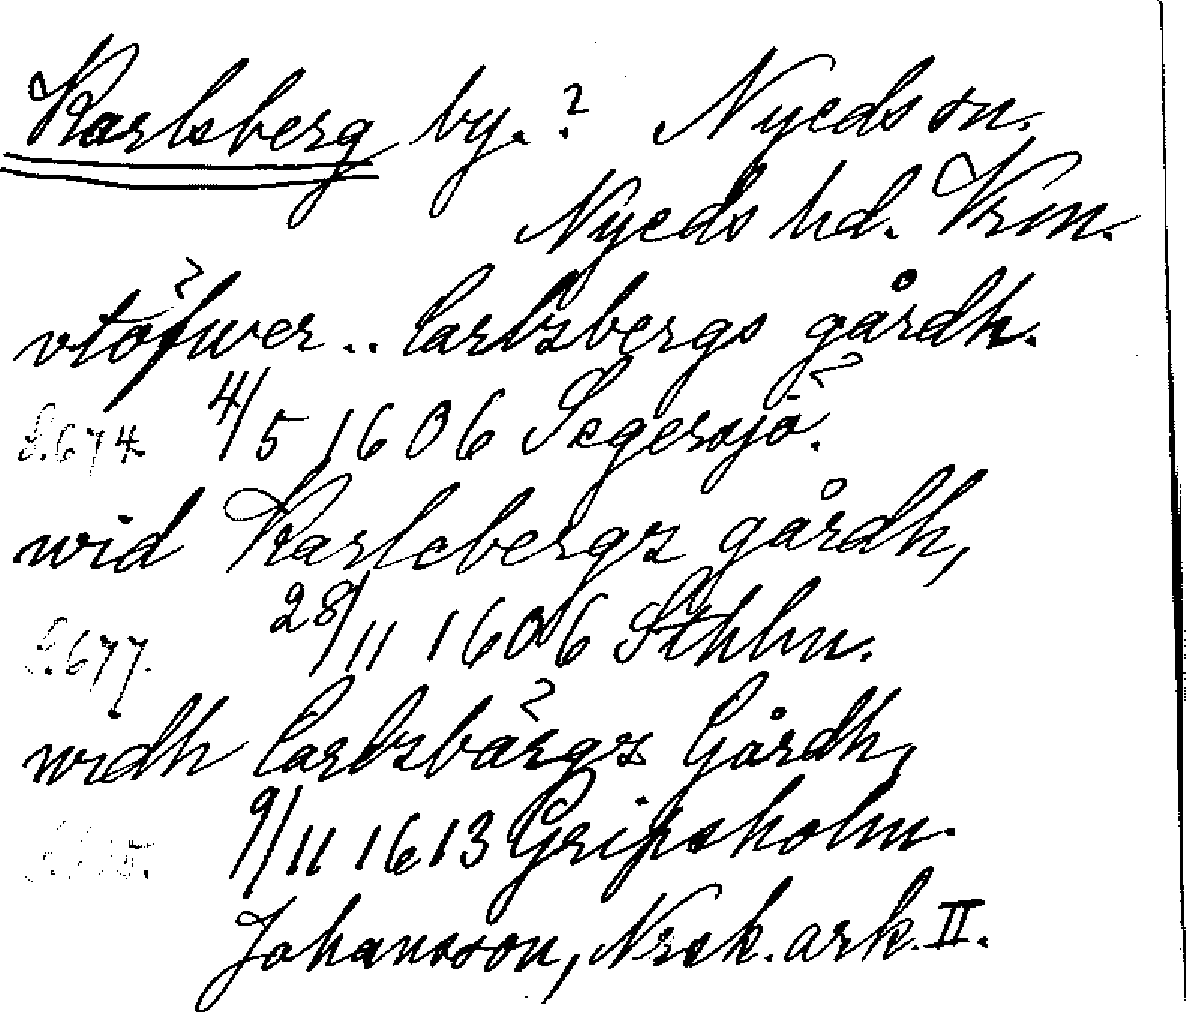 Karlsberg by.? Nyeds sn.
Nyeds hd. Vrm.
vtöfwer .. Carlzbergs gårdh.
S.674. 4/5 1606 Segersjö.
wid Karlebergz gårdh,
S.677. 28/11 1606 Sthlm.
widh Carlzbärgz Gårdh,
9/11 1613 Gripsholm.
Johansson, Nrck. ark. II.